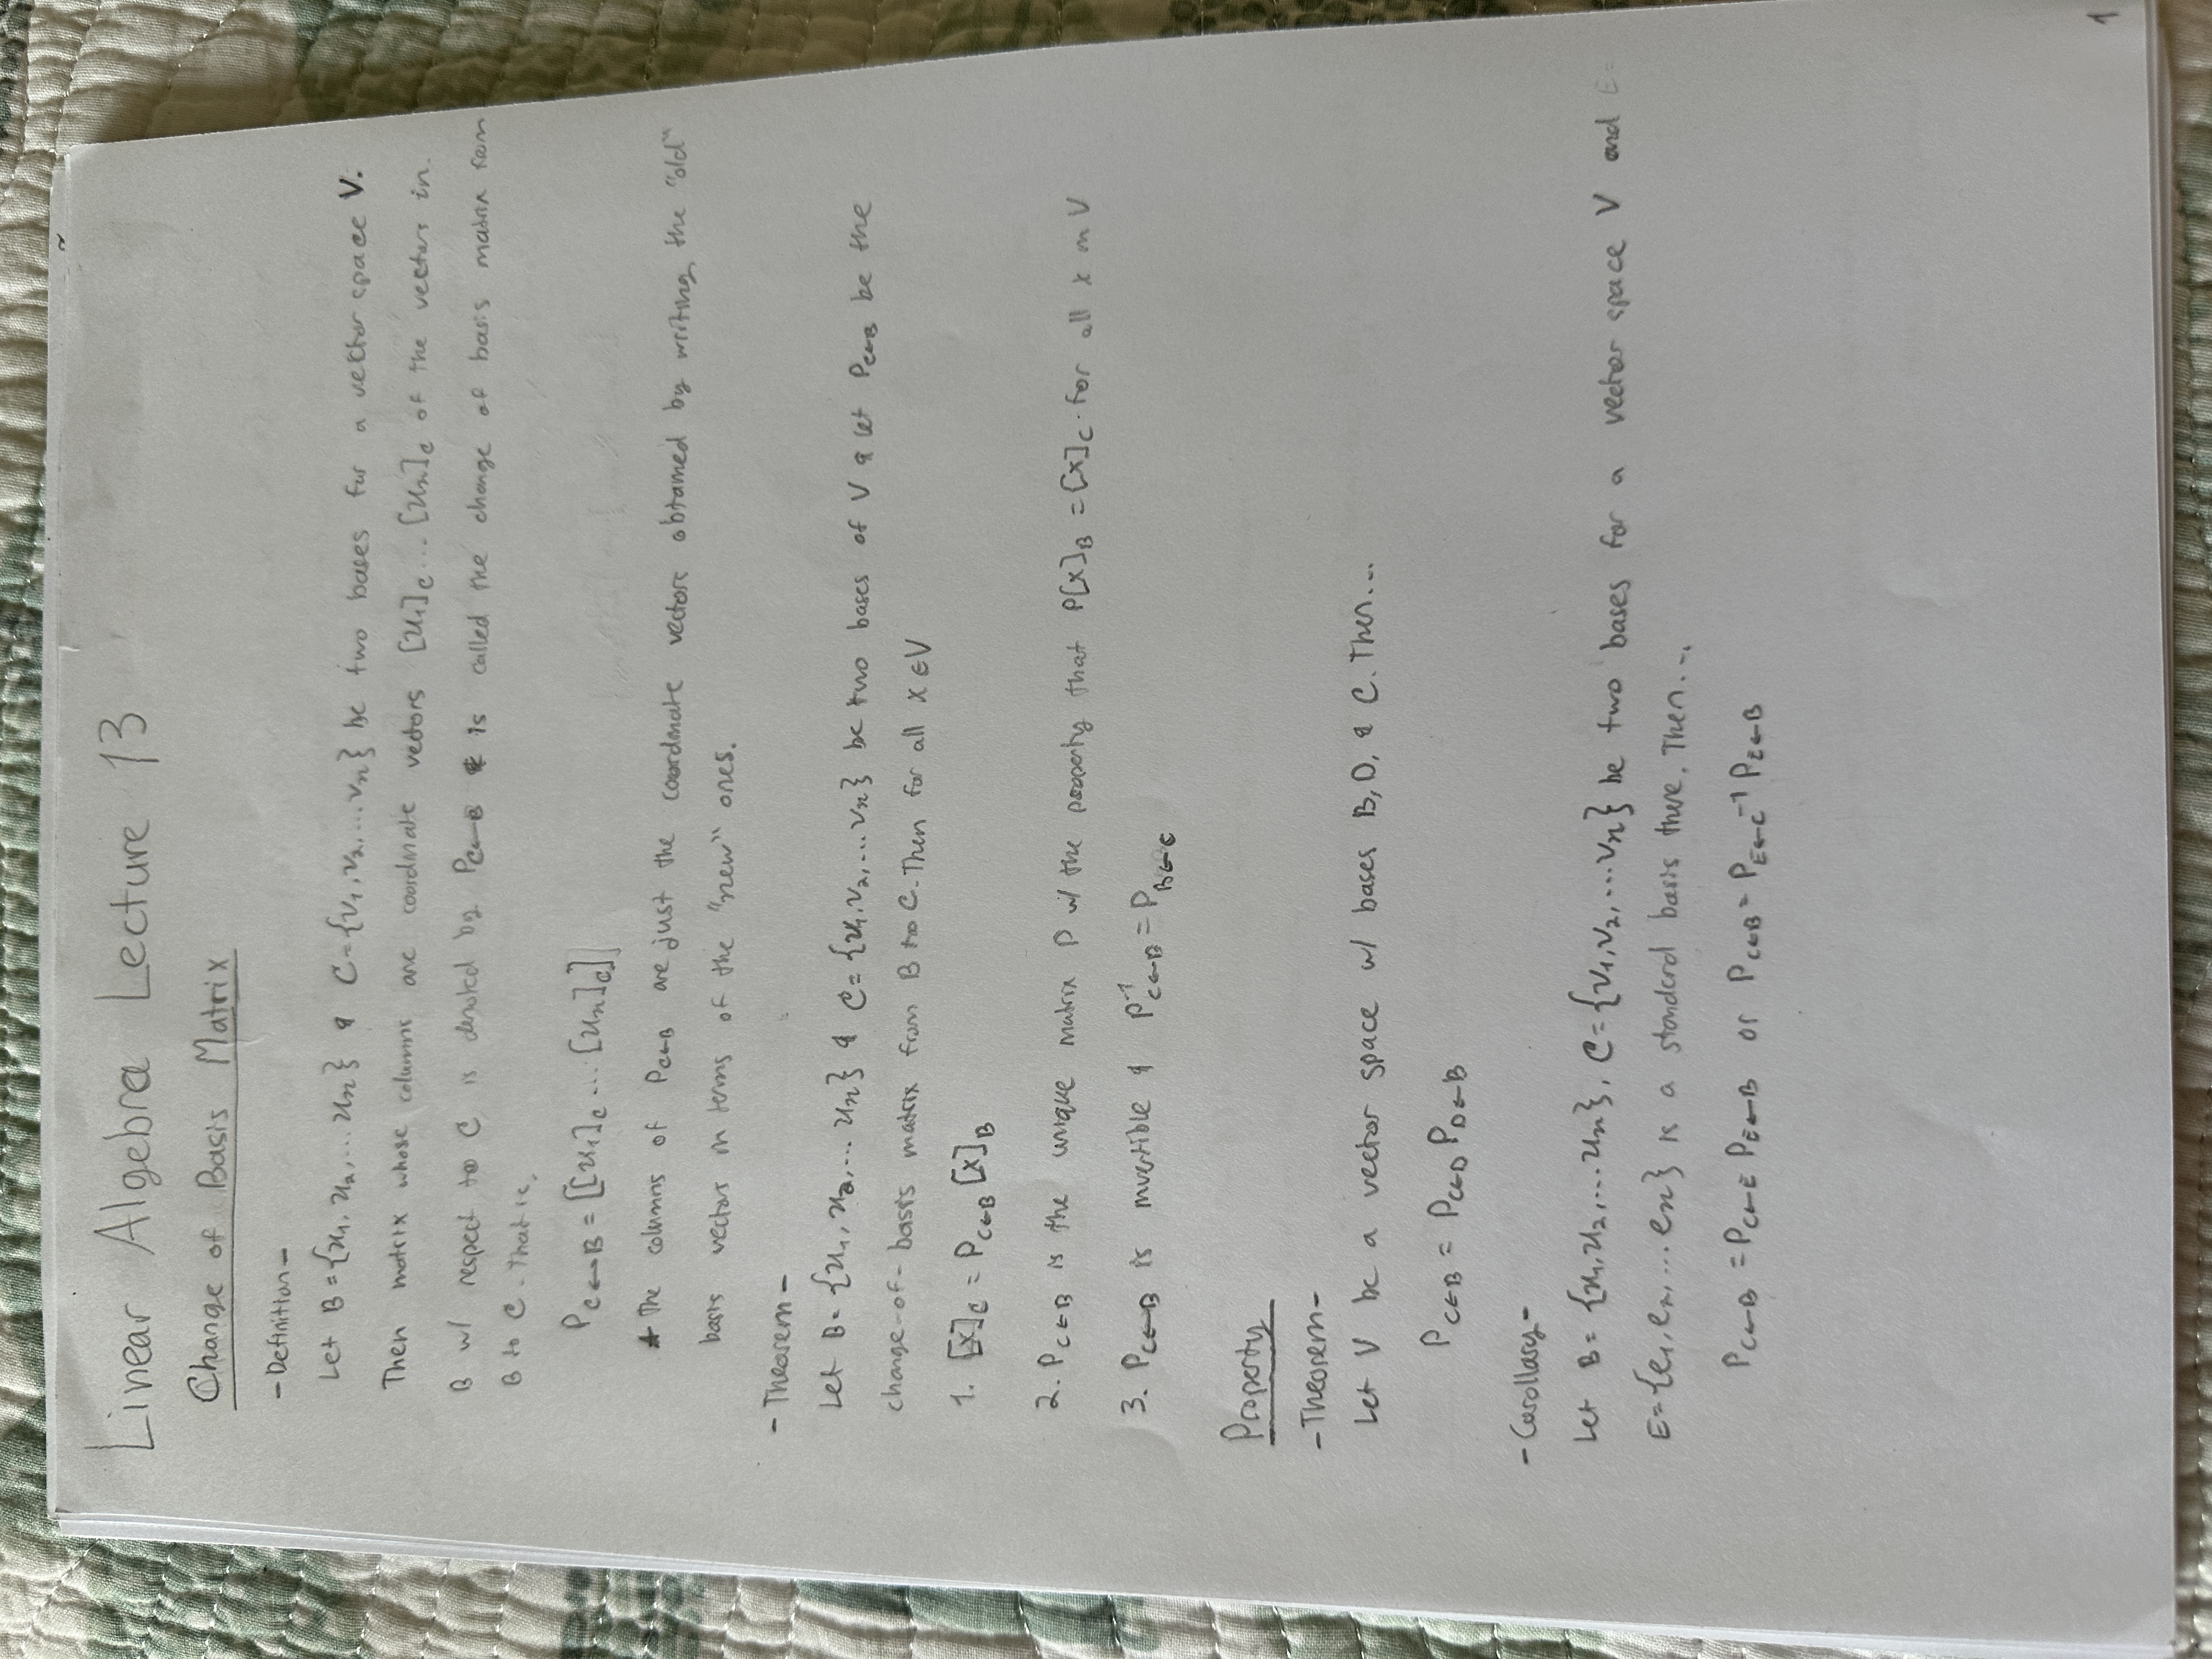 Linear Algebra Lecture 13
Change of Basis Matrix
- Definition -
Let B = {u₁, u₂, ... uₙ} & C = {v₁, v₂, ... vₙ} be two bases for a vector space V.
Then matrix whose columns are coordinate vectors [u₁]c ... [uₙ]c of the vectors in.
B w/ respect to C is denoted by Pc←B & is called the change of basis matrix from
B to C. That is,
Pc←B = [[u₁]c ... [uₙ]c]
* The columns of Pc←B are just the coordinate vectors obtained by writing the "old"
basis vectors in terms of the "new" ones.
- Theorem -
Let B = {u₁, u₂, ... uₙ} & C = {v₁, v₂, ... vₙ} be two bases of V & let Pc←B be the
change-of-basis matrix from B to C. Then for all x ∈ V
1. [x]c = Pc←B [x]B
2. Pc←B is the unique matrix P w/ the property that P[x]B = [x]c. for all x in V
3. Pc←B is invertible & P⁻¹c←B = PB←c
Property
- Theorem -
Let V be a vector space w/ bases B, D, & C. Then...
Pc←B = Pc←D PD←B
- Corollary -
Let B = {u₁, u₂, ... uₙ}, C = {v₁, v₂, ... vₙ} be two bases for a vector space V and E=
E = {e₁, e₂, ... eₙ} is a standard basis there. Then...
Pc←B = Pc←E PE←B or Pc←B = PE←c⁻¹ PE←B
1